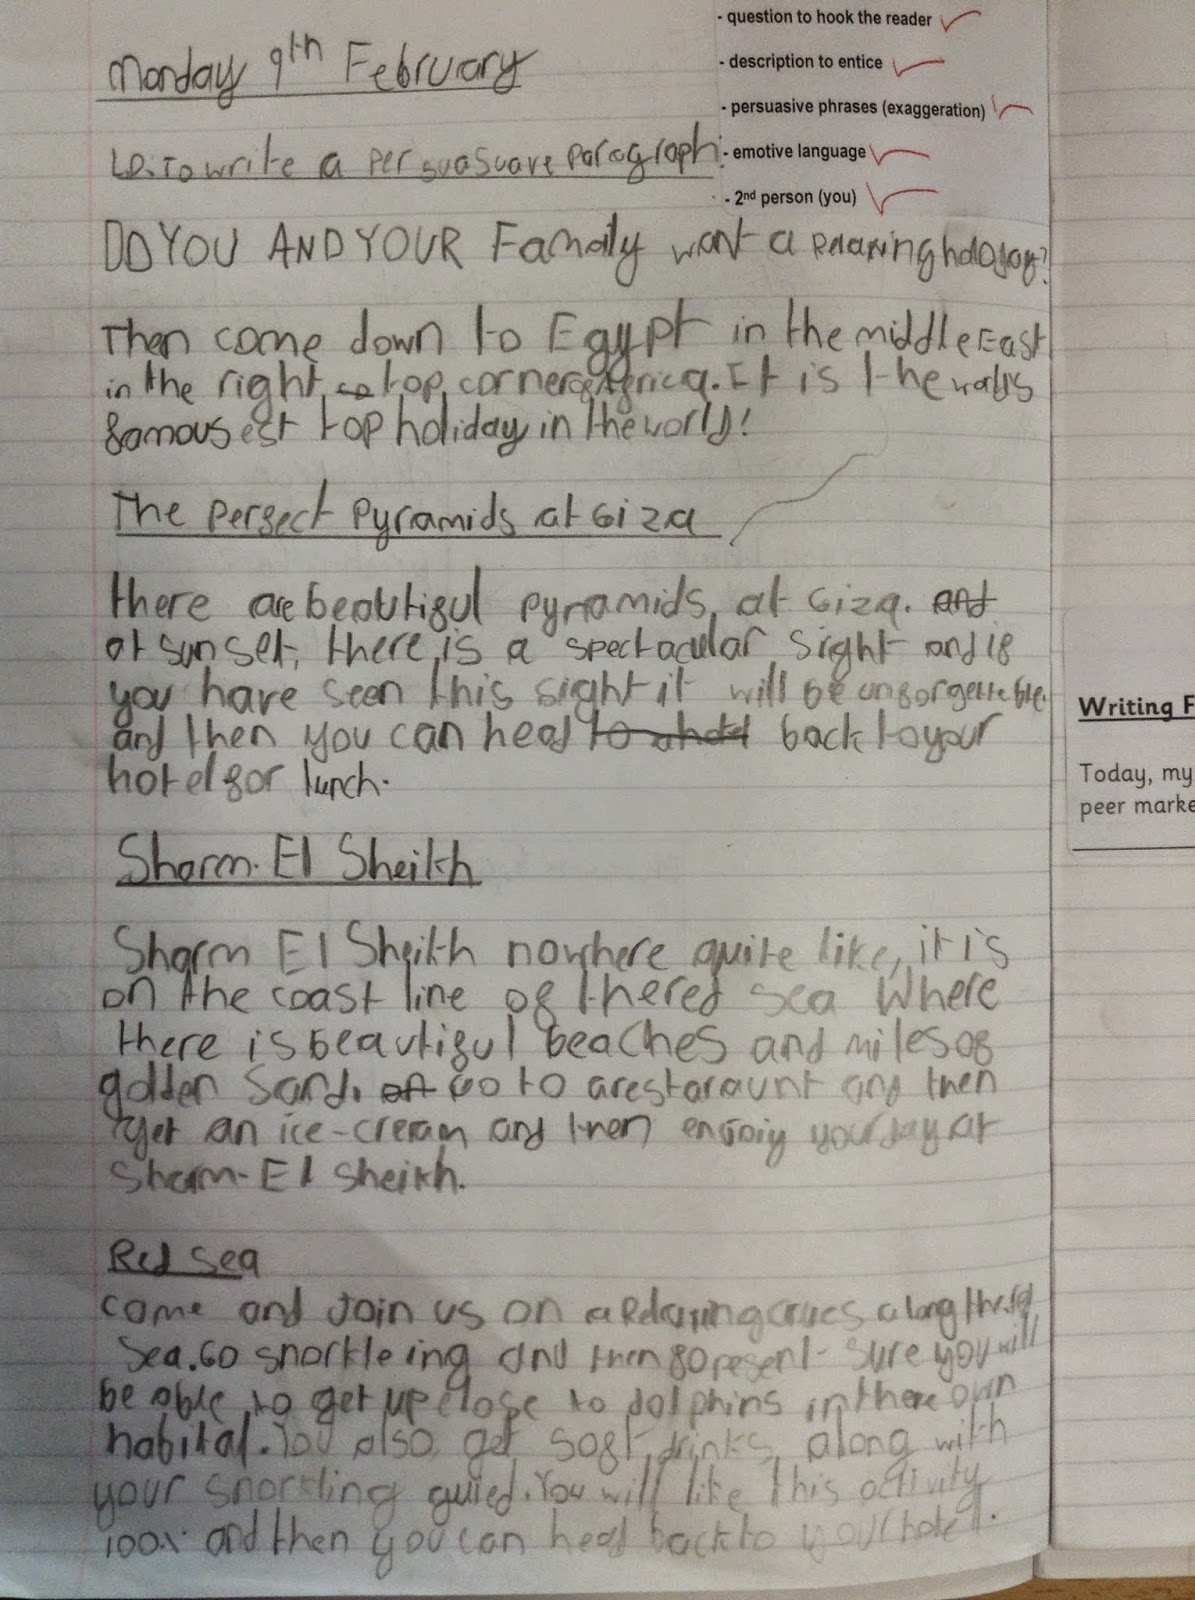 - question to hook the reader
- description to entice
- persuasive phrases (exaggeration)
- emotive language
- 2nd person (you)
Monday 9th February
L.O. To write a persuasuave paragraph.
DO YOU AND YOUR Family want a Relaxing holoday?
Then come down to Egypt in the middle East
in the right top corner of Africa. It is the worlds
famousest top holiday in the world!
The perfect pyramids at Giza
there are beautiful pyramids, at Giza. And
at sunset, there is a spectacular sight and if
you have seen this sight it will be unforgetteble.
and then you can head to a hotel back to your
hotel for lunch.
Sharm-El Sheikh
Sharm El Sheikh nowhere quite like, it is
on the coast line of the red sea Where
there is beautiful beaches and miles of
golden sand. Go to a restaraunt and then
get an ice-cream and then enjoiy your day at
Sharm-El sheikh.
Red Sea
come and Join us on a Relaxing crues along the red
Sea. Go snorkleing and then 80 pesent sure you will
be able to get up close to dolphins in there own
habital. You also get soft drinks, along with
your snorkling guied. You will like this activity
100% and then you can head back to your hotel.
Writing F
Today, my
peer marke